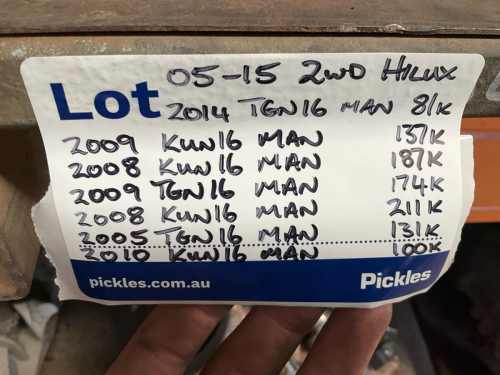 Lot 05-15 2WD HILUX
2014 TGN16 MAN 81K
2009 KUN16 MAN 137K
2008 KUN16 MAN 187K
2009 TGN16 MAN 174K
2008 KUN16 MAN 211K
2005 TGN16 MAN 131K
2010 KUN16 MAN 100K
pickles.com.au Pickles